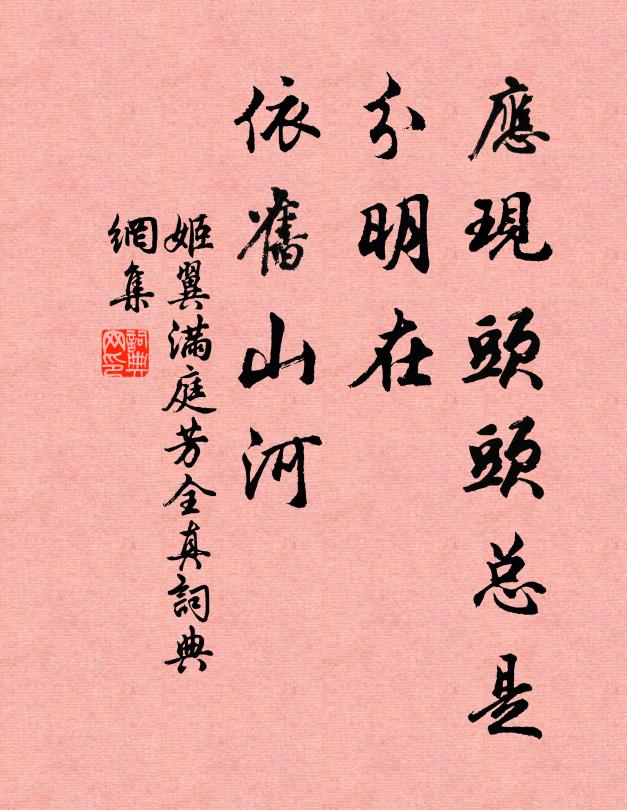 應現頭頭总是
分明在
依舊山河
姬翼滿庭芳全真詞典
網集
詞典
网印